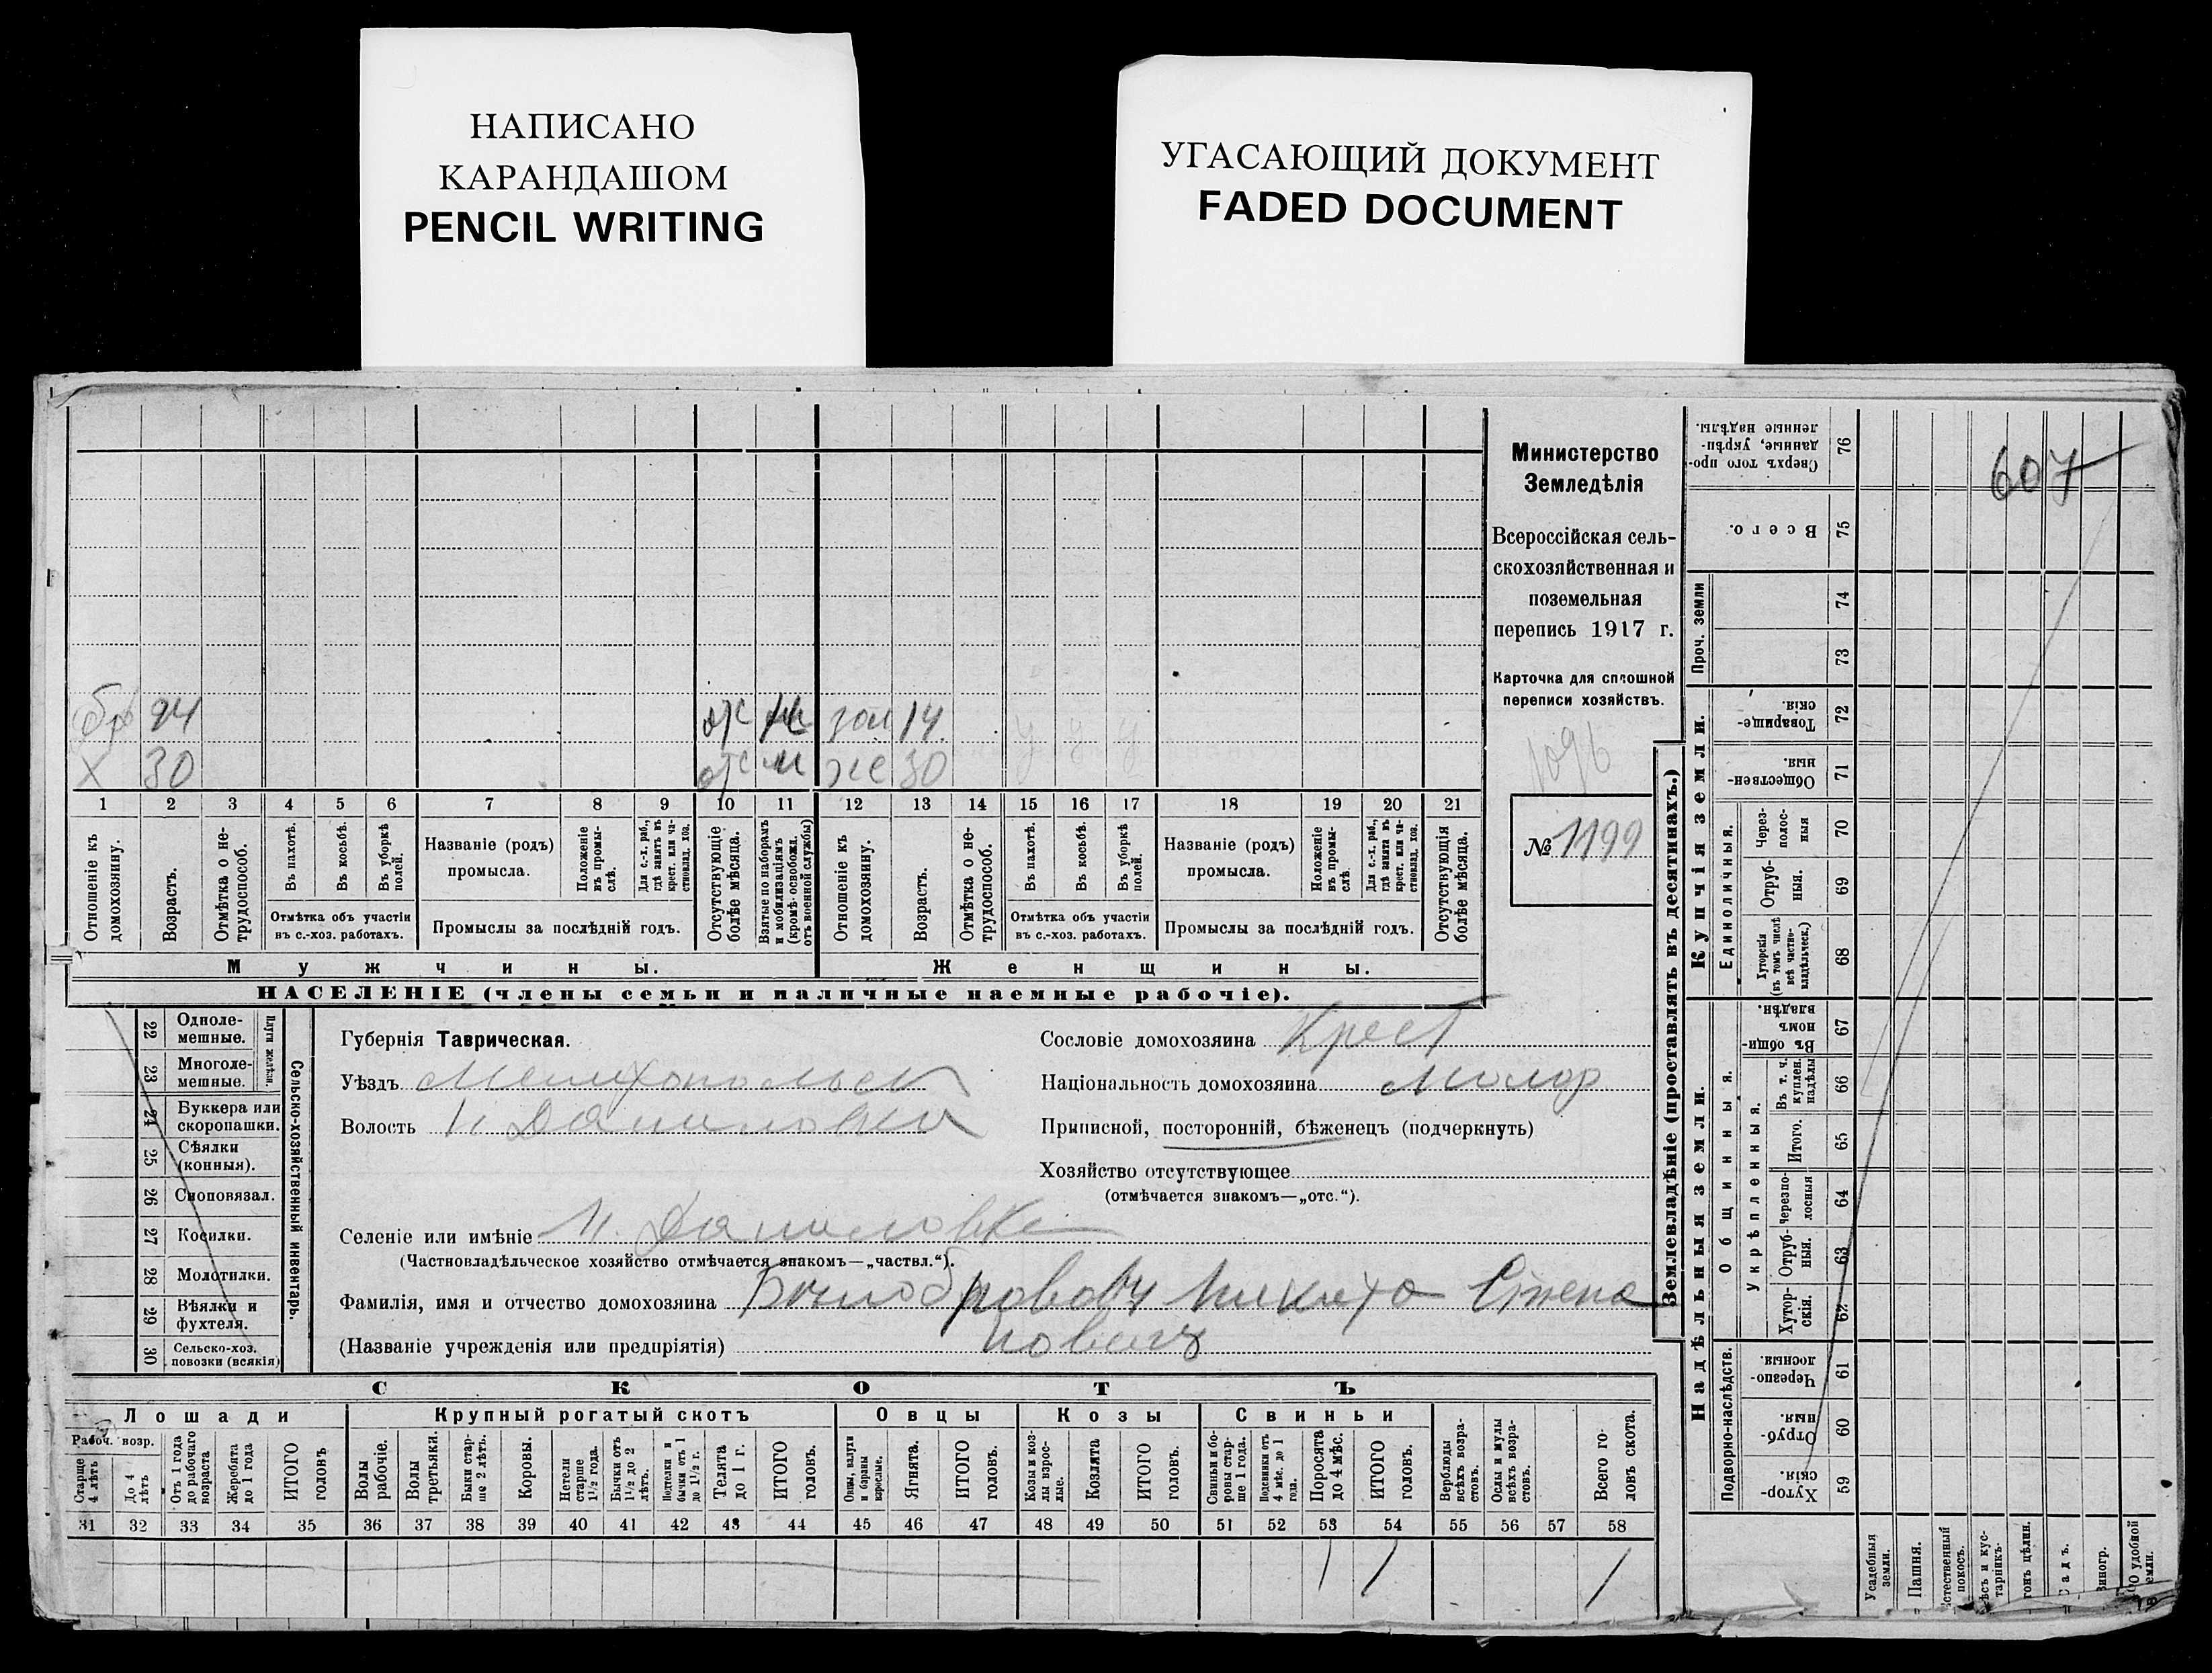 НАПИСАНО
КАРАНДАШОМ
PENCIL WRITING
УГАСАЮЩИЙ ДОКУМЕНТ
FADED DOCUMENT
бр 24 отс м зол 14 у у у
х 30 отс м же 30
1 2 3 4 5 6 7 8 9 10 11 12 13 14 15 16 17 18 19 20 21
Отношеніе къ домохозяину.
Возрастъ.
Отмѣтка о не-трудоспособ.
Въ пахотѣ.
Въ косьбѣ.
Въ уборкѣ полей.
Отмѣтка объ участіи
въ с.-хоз. работахъ.
Названіе (родъ)
промысла.
Положеніе въ промы-слѣ.
Для с.-х. раб., гдѣ занятъ въ крест. или ча-стновлад. хоз.
Промыслы за послѣдній годъ.
Отсутствующіе болѣе мѣсяца.
Взятые по наборамъ и мобилизаціямъ (кромѣ освобожд. отъ военной службы)
Отношеніе къ домохозяину.
Возрастъ.
Отмѣтка о не-трудоспособ.
Въ пахотѣ.
Въ косьбѣ.
Въ уборкѣ полей.
Отмѣтка объ участіи
въ с.-хоз. работахъ.
Названіе (родъ)
промысла.
Положеніе въ промы-слѣ.
Для с.-х. раб., гдѣ занята въ крест. или ча-стновлад. хоз.
Промыслы за послѣдній годъ.
Отсутствующія болѣе мѣсяца.
Мужчины.
Женщины.
НАСЕЛЕНІЕ (члены семьи и наличные наемные рабочіе).
Министерство
Земледѣлія
Всероссійская сель-
скохозяйственная и
поземельная
перепись 1917 г.
Карточка для сплошной
переписи хозяйствъ.
1096
№ 1199
22 Одноле-мешные.
23 Многоле-мешные.
Плуги желѣзн.
24 Буккера или скоропашки.
25 Сѣялки (конныя).
26 Сноповязал.
27 Косилки.
28 Молотилки.
29 Вѣялки и фухтеля.
30 Сельско-хоз. повозки (всякія)
Сельско-хозяйственный инвентарь.
Губернія Таврическая.
Уѣздъ Мелитопольск
Волость Н Даниловка
Селеніе или имѣніе Н. Даниловка
(Частновладѣльческое хозяйство отмѣчается знакомъ—„частвл.“).
Фамилія, имя и отчество домохозяина Никита Степа
(Названіе учрежденія или предпріятія) новичъ
Сословіе домохозяина Крест
Національность домохозяина Малор
Приписной, посторонній, бѣженецъ (подчеркнуть)
Хозяйство отсутствующее
(отмѣчается знакомъ—„отс.“).
СКОТЪ
Лошади
Крупный рогатый скотъ
Овцы
Козы
Свиньи
Рабоч. возр.
Старше 4 лѣтъ
До 4 лѣтъ
Отъ 1 года до рабочаго возраста
Жеребята до 1 года
ИТОГО головъ
Волы рабочіе.
Волы третьяки.
Быки стар-ше 2 лѣтъ.
Коровы.
Нетели старше 1½ года.
Бычки отъ 1½ до 2 лѣтъ.
Подтелки и бычки отъ 1 до 1½ г.
Телята до 1 г.
ИТОГО головъ.
Овцы, валухи и бараны взрослые.
Ягнята.
ИТОГО головъ.
Козы и коз-лы взрос-лые.
Козлята
ИТОГО головъ.
Свиньи и бо-ровы стар-ше 1 года.
Подсвинки отъ 4 мѣс. до 1 года.
Поросята до 4 мѣс.
ИТОГО головъ.
Верблюды всѣхъ возра-стовъ.
Ослы и мулы всѣхъ возра-стовъ.
Всего го-ловъ скота.
31 32 33 34 35 36 37 38 39 40 41 42 43 44 45 46 47 48 49 50 51 52 53 54 55 56 57 58
1 1 1
Землевладѣніе (проставлять въ десятинахъ.)
Надѣльныя земли.
Купчія земли.
Сверхъ того про-данные, укрѣп-ленные надѣлы. 76
Всего. 75
Проч. земли
74
73
Товарище-скія. 72
Обществен-ныя. 71
Единоличныя.
Через-полос-ныя 70
Отруб-ныя. 69
Хуторскія (въ томъ числѣ всѣ частно-владѣльческ.) 68
Общинныя.
Въ общи-номъ владѣн. 67
Укрѣпленныя.
Въ т. ч. куплен. надѣлы 66
Итого. 65
Черезпо-лосныя 64
Отруб-ныя. 63
Хутор-скія. 62
Подворно-наслѣдств.
Черезпо-лосныя. 61
Отруб-ныя. 60
Хутор-скія. 59
Усадебныя земли.
Пашня.
607